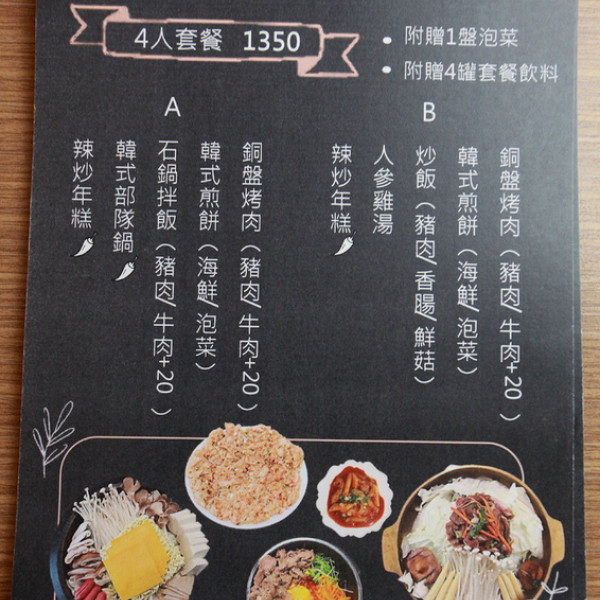 4人套餐 1350
• 附贈1盤泡菜
• 附贈4罐套餐飲料
A
銅盤烤肉（豬肉/牛肉+20）
韓式煎餅（海鮮/泡菜）
石鍋拌飯（豬肉/牛肉+20）
韓式部隊鍋
辣炒年糕
B
銅盤烤肉（豬肉/牛肉+20）
韓式煎餅（海鮮/泡菜）
炒飯（豬肉/香腸/鮮菇）
人參雞湯
辣炒年糕